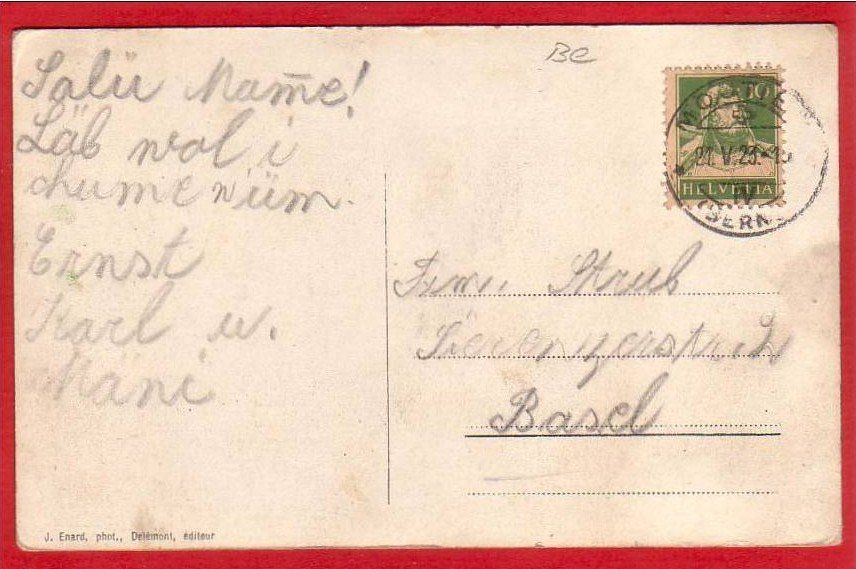 BC
Salü Mame!
Läb wol i
chume nüm.
Ernst
Karl u.
Mäni
10
HELVETIA
MOUTIER
21.V.23.
(BERN
Fam. Strub
Basel
J. Enard, phot., Delémont, éditeur